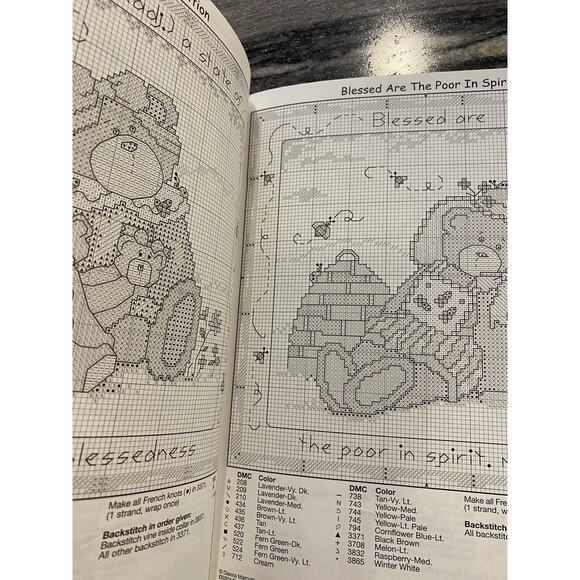 ction
adj.) a state of
lessedness
Make all French knots (●) in 3371.
(1 strand, wrap once)
Backstitch in order given:
Backstitch vine inside collar in 3837.
All other backstitch in 3371.
Blessed Are The Poor In Spiri
Blessed are
the poor in spirit,
DMC Color
208 Lavender-Vy. Dk.
209 Lavender-Dk.
210 Lavender-Med.
434 Brown-Lt.
435 Brown-Vy. Lt.
436 Tan
437 Tan-Lt.
520 Fern Green-Dk.
522 Fern Green
524 Fern Green-Vy. Lt.
712 Cream
DMC Color
738 Tan-Vy. Lt.
743 Yellow-Med.
744 Yellow-Pale
745 Yellow-Lt. Pale
794 Cornflower Blue-Lt.
3371 Black Brown
3708 Melon-Lt.
3832 Raspberry-Med.
3865 Winter White
Make all Fre
(1 stran
Backstitch
All backstit